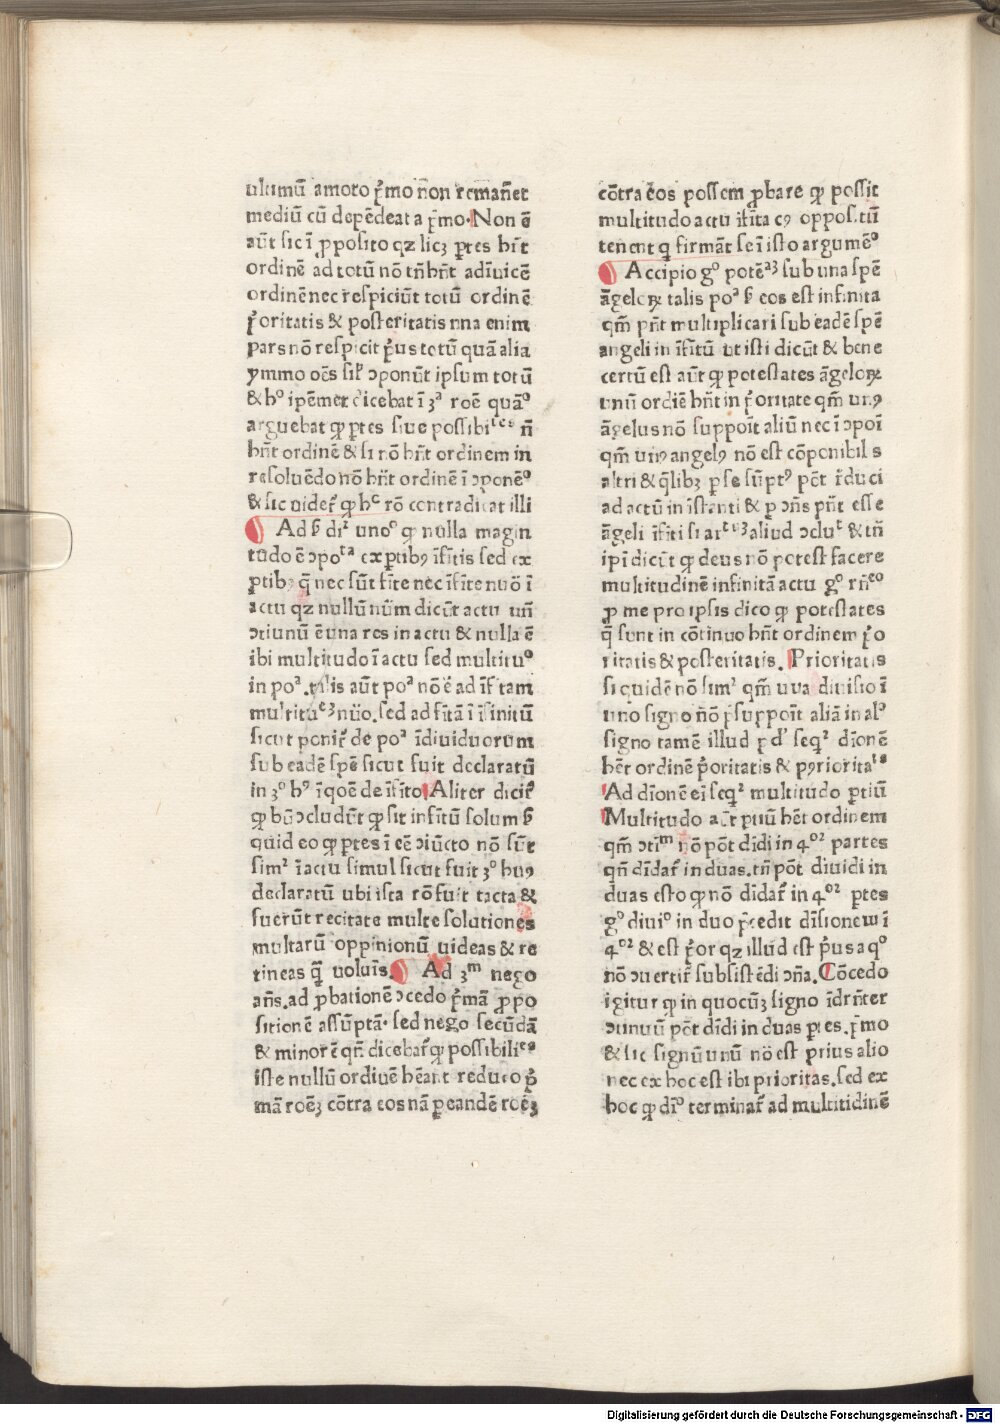 ultimū amoto p̄mo ñon remañet
mediū cū depēdeat a p̄mo. Non ē
aūt sic ī ꝓposito qz licꝫ ꝑtes hñt
ordinē ad totū nō tñ hñt adīuicē
ordinē nec respiciūt totū ordinē
p̄oritatis & posteritatis nna enim
pars nō respicit p̄us totū quā alia
ymmo oēs sil̄ ɔponūt ipsum totū
& hᵒ ipēmet dicebat ī 3ᵃ roē quāᵒ
arguebat ꝙ ꝑtes siue possibiᵗᵉˢ ñ
hñt ordinē & si nō hñt ordinem in
resoluēdo nō hñt ordinē ī ɔponēᵒ
& sic uider̄ ꝙ hᶜ rō contradicat illi
Ad ꝣ dr̄ unoᵒ ꝙ nulla magin
tudo ē ɔpoᵗᵃ ex ꝑtibꝰ īfītis sed ex
ꝑtibꝰ q̄ nec sūt fīte nec īfīte nuō ī
actu qz nullū nūm dicūt actu uñ
ɔtiunū ē una res in actu & nulla ē
ibi multitudo ī actu sed multituᵒ
in poᵃ. talis aūt poᵃ nō ē ad īfītam
multituᵉꝫ nūo. sed ad fītā ī īfinitū
sicut ponir̄ de poᵃ īdiuiduorum
sub eadē spē sicut fuit declaratū
in 3ᵒ hꝰ īqoē de īfīto Aliter dicir̄
ꝙ bñ ɔcludūt ꝙ sit infitū solum ꝣ
quid eo ꝙ ꝑtes ī eē ɔiūcto nō sūt
simᶻ ī actu simul sicut fuit 3ᵒ huꝰ
declaratū ubi ista rō fuit tacta &
fuerūt recitate multe solutiones
multarū oppinionū uideas & re
tineas q̄ uoluis. Ad 3ᵐ nego
añs. ad ꝓbationē ɔcedo p̄mā ꝓpo
sitionē assūptā. sed nego secūdā
& minorē qñ dicebar̄ ꝙ possibiliᵉˢ
iste nullū ordiuē hēant reduco p̄
mā roēꝫ cōtra eos nā ꝑ eandē roēꝫ
cōtra eos possem ꝓbare ꝙ possit
multitudo actu īfīta cꝰ oppositū
tenent q̇ firmāt se ī isto argumēᵒ
Accipio gᵒ potēᵃꝫ sub una spē
āgeloꝝ talis poᵃ ꝣ eos est infinita
qm̄ pñt multiplicari sub eadē spē
angeli in īfītū ut isti dicūt & bene
certū est aūt ꝙ potestates āgeloꝝ
unū ordiē hñt in p̄oritate qm̄ unꝰ
āgelus nō suppoīt aliū nec ī ɔpoī
qm̄ unꝰ angelꝰ nō est cōponibilis
altri & q̄libꝫ ꝑ se sūptꝰ pēt r̄duci
ad actū in īstanti & ꝑ ɔñs pñt esse
āgeli īfīti si arᵗᵘꝫ aliud ɔcluᵗ & tñ
ipī dicūt ꝙ deus nō potest facere
multitudinē infinitā actu gᵒ rñᵉᵒ
ꝓ me pro ipsis dico ꝙ potestates
q̄ sunt in cōtinuo hñt ordinem p̄o
ritatis & posteritatis. Prioritatis
siquidē nō simᶻ qm̄ uua diuisio ī
uno signo ñō p̄suppoīt aliā in alᵒ
signo tamē illud ꝑdᶻ seqᶻ dīonē
hēt ordinē p̄oritatis & pꝰrioritaᵗˢ
Ad dīonē eī seqᶻ multitudo ꝑtiū
Multitudo aūt ꝑtiū hēt ordinem
qm̄ ɔtīᵐ nō pōt didi in 4ᵒᶻ partes
qñ dīdar̄ in duas. tñ pōt diuidi in
duas esto ꝙ nō dīdar̄ in 4ᵒᶻ ꝑtes
gᵒ diuiᵒ in duo p̄cedit dīsionem ī
4ᵒᶻ & est p̄or qz illud est p̄us a qᵒ
nō ɔuertir̄ subsistēdi ɔña. Cōcedo
igitur ꝙ in quocūꝫ signo īdrñter
ɔtinuū pōt dīdi in duas ꝑtes. p̄mo
& sic signū unū nō est prius alio
nec ex hoc est ibi prioritas. sed ex
hoc ꝙ dīᵒ terminar̄ ad multitidinē
Digitalisierung gefördert durch die Deutsche Forschungsgemeinschaft - DFG